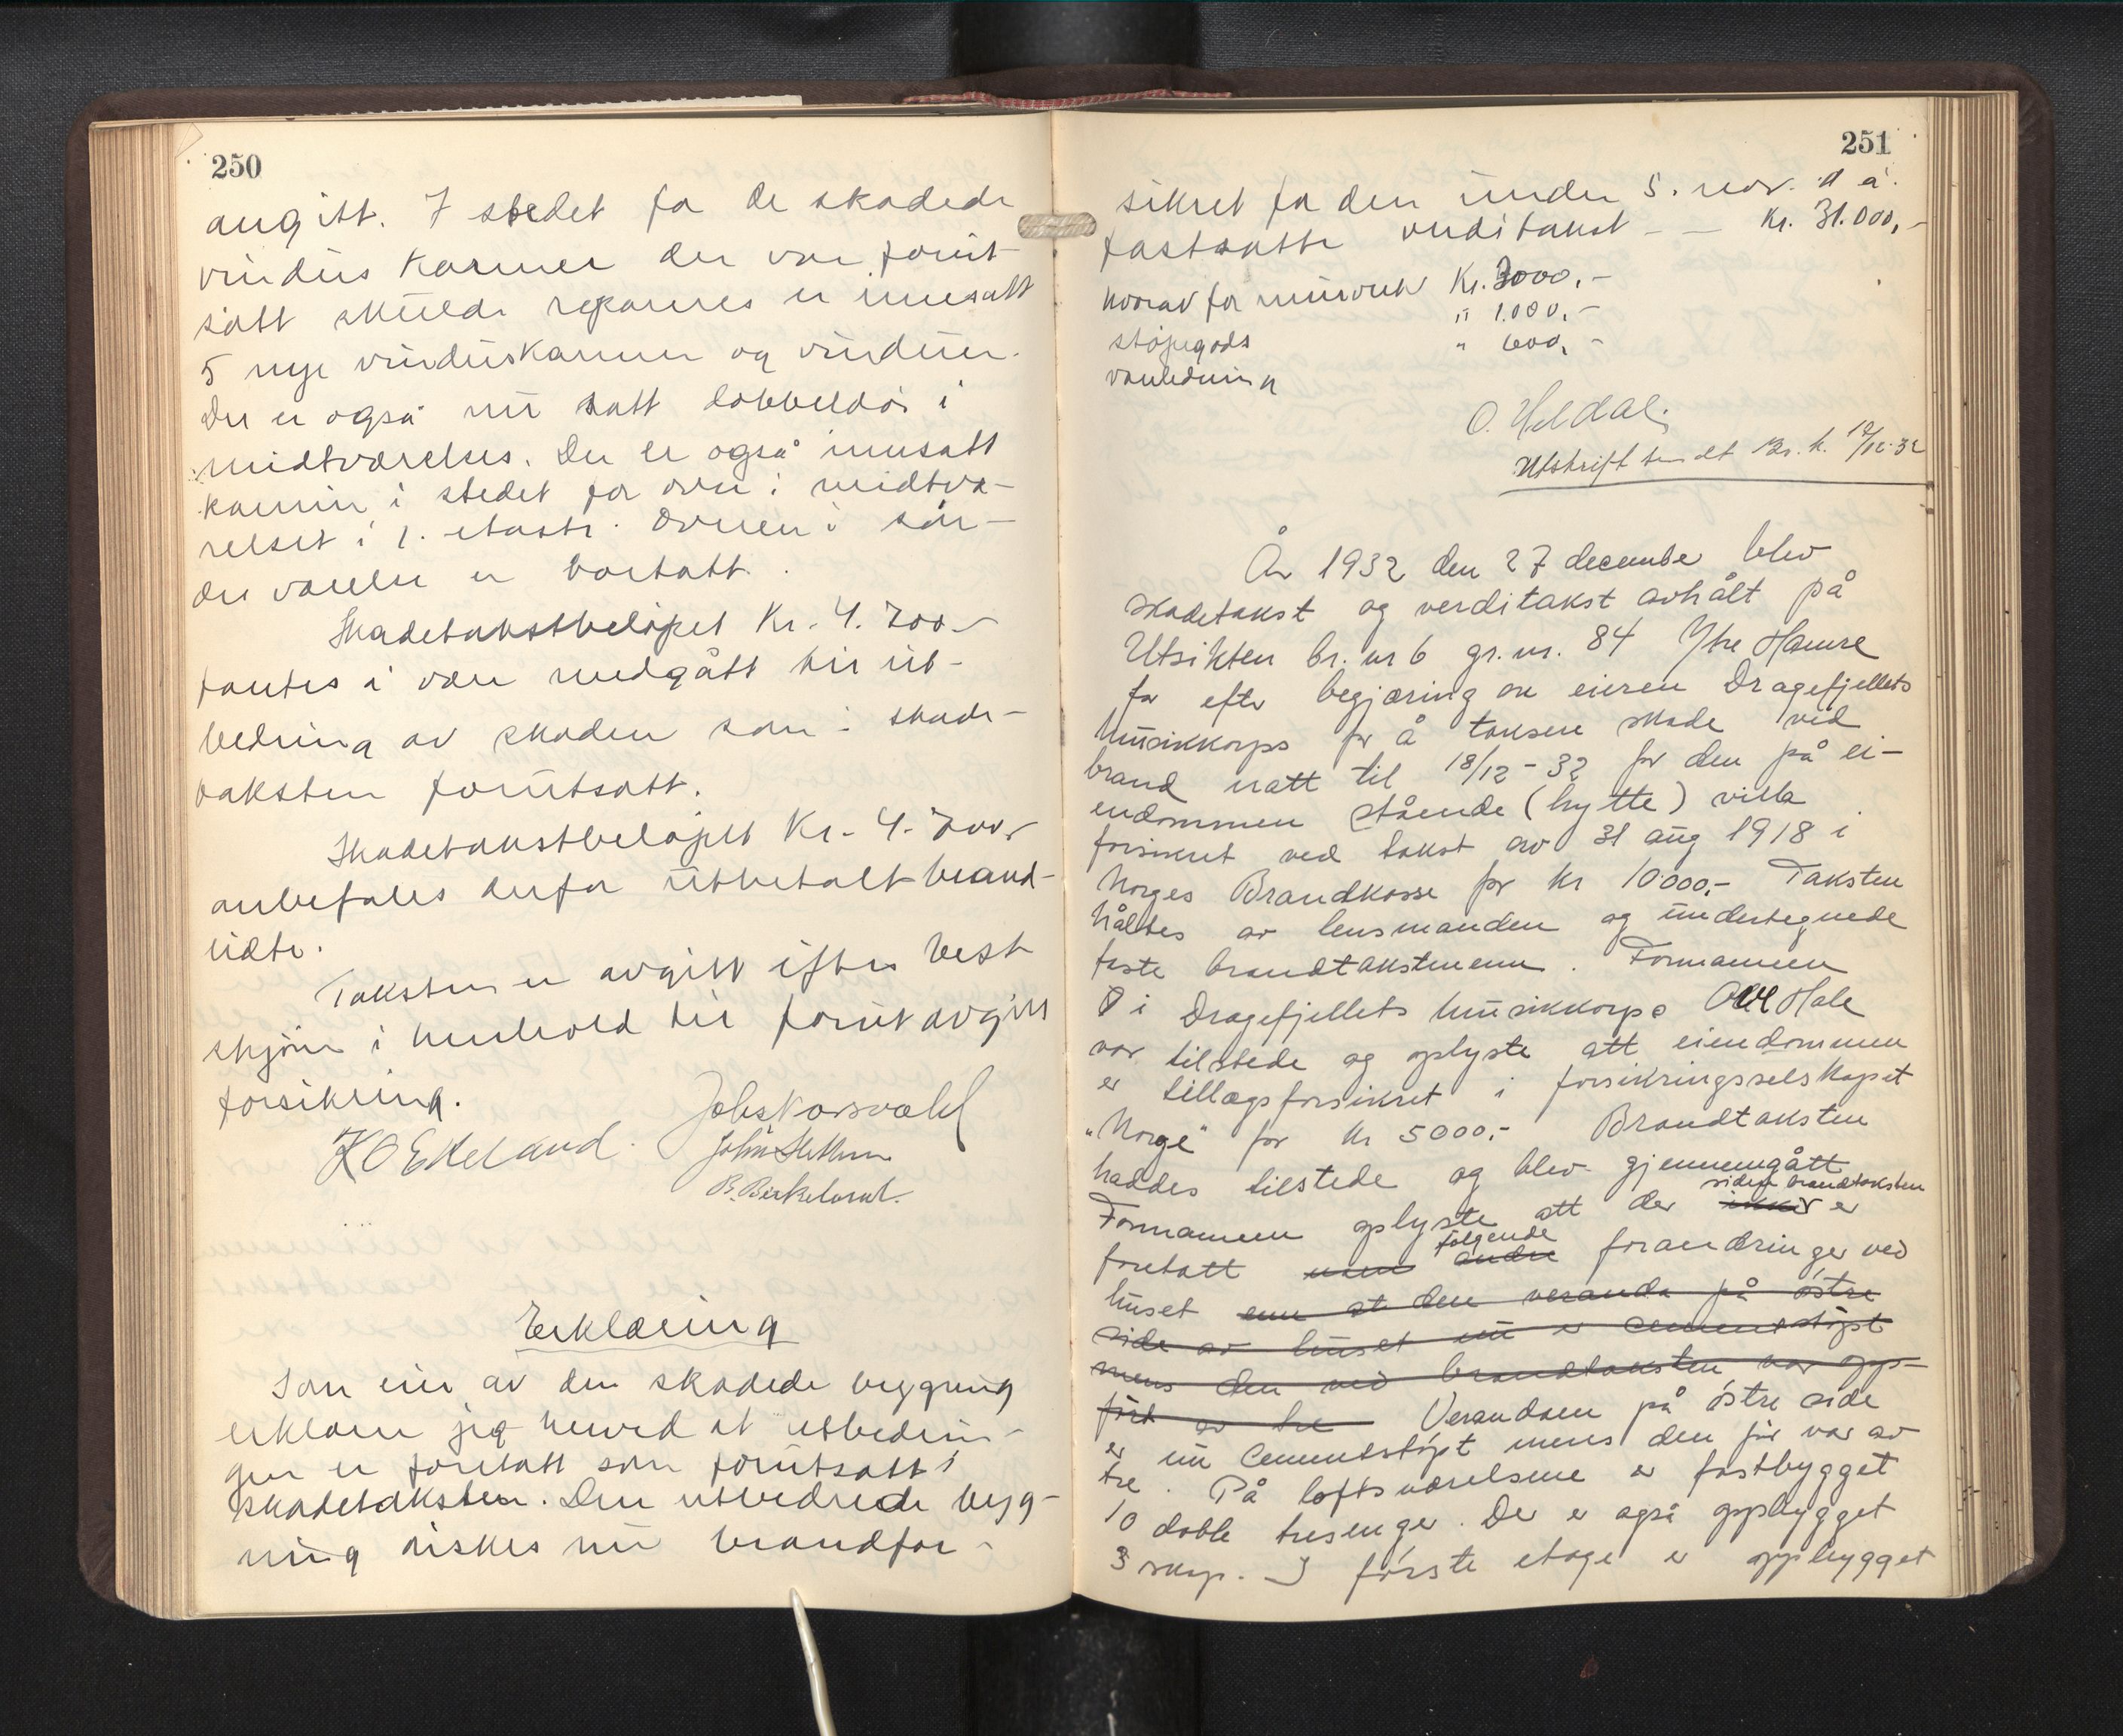 250
angitt. I stedet for de skadede
vindus karmer der var forut-
satt skulde repareres er innesatt
5 nye vinduskarmer og vinduer.
Der er også nu satt dobbeldør i
midtværelset. Der er også innsatt
kamin i stedet for ovn i midtvæ-
relset i 1. etasje. Ovnen i søn-
dre værelse er borttatt.
Skadetakstbeløpet Kr. 4.700.-
fantes i være medgått til ut-
bedring av skaden som i skade-
taksten forutsatt.
Skadetakstbeløpet Kr. 4.700,-
anbefales derfor utbetalt brand-
lidte.
Taksten er avgitt efter best
skjønn i henhold til forut avgitt
forsikring.
K O Ekeland. Johs Korsvold
John Slettum
B. Birkeland.
Erklæring
Som eier av den skadede bygning
erklærer jeg herved at utbedrin-
gen er foretatt som forutsatt i
skadetaksten. Den utbedrede byg-
ning ønskes nu brandfor-
251
sikret for den under 5. nov. d. å.
fastsatte verditakst — — Kr. 31.000,-
hvorav for murverk Kr. 3000,-
støpegods " 1.000,-
vannledning " 600,-
O. Heldal.
Utskrift sendt Br. k. 12/12-32
År 1932 den 27 december blev
skadetakst og verditakst avhålt på
Utsikten br. nr 6 gr. nr. 84 Ytre Hamre
for efter begjæring av eieren Dragefjellets
Musikkorps for å taksere skade ved
brand natt til 18/12-32 for den på ei-
endommen stående (hytte) villa
forsikret ved takst av 31 aug 1918 i
Norges Brandkasse for kr 10000,- Taksten
håltes av lensmanden og undertegnede
faste brandtakstmenn. Formannen
i Dragefjellets Musikkorps Ole Hale
var tilstede og oplyste att eiendommen
er tillægsforsikret i forsikringsselskapet
"Norge" for kr 5000,- Brandtaksten
haddes tilstede og blev gjennemgått
siden brandtaksten
Formannen oplyste att der ikke er
følgende
foretatt noen andre forandringer ved
huset enn at den veranda på østre
side av huset nu er cementstøpt
mens den ved brandtaksten var opp-
ført av tre Verandaen på østre side
er nu cementstøpt mens den før var av
tre. På loftsværelsene er fastbygget
10 doble tresenger. Der er også oppbygget
3 skap. I første etage er oppbygget